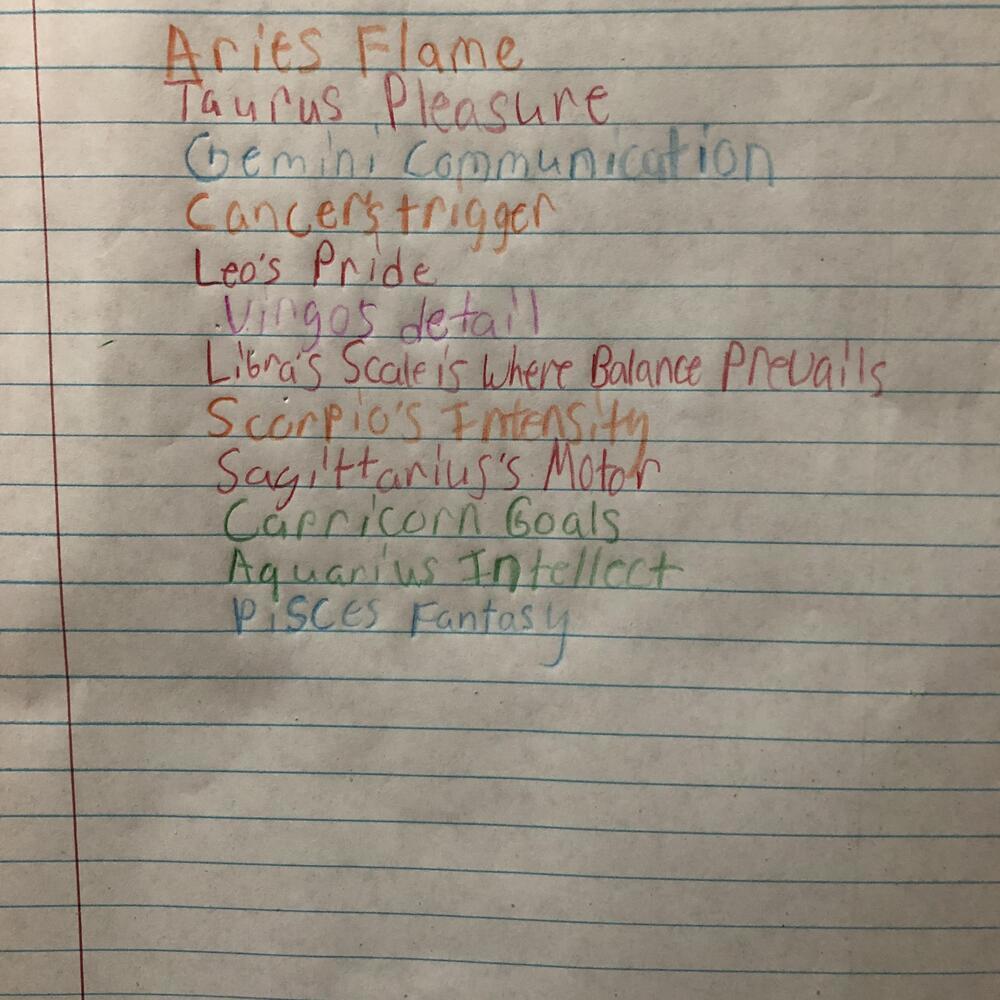 Aries Flame
Taurus Pleasure
Gemini Communication
Cancer's trigger
Leo's Pride
Virgos detail
Libra's Scale is Where Balance Prevails
Scorpio's Intensity
Sagittarius's Motor
Capricorn Goals
Aquarius Intellect
Pisces Fantasy